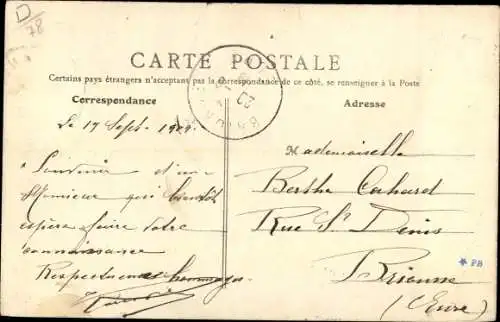 D
78
CARTE POSTALE
Certains pays étrangers n'acceptant pas la correspondance de ce côté, se renseigner à la Poste
Correspondance
Adresse
Le 17 Sept.
Souvenir d'un
Monsieur qui bientôt
espère faire votre
connaissance
Respectueux hommages
Mademoiselle
Berthe Cahard
Rue St Denis
(Eure)
* PB